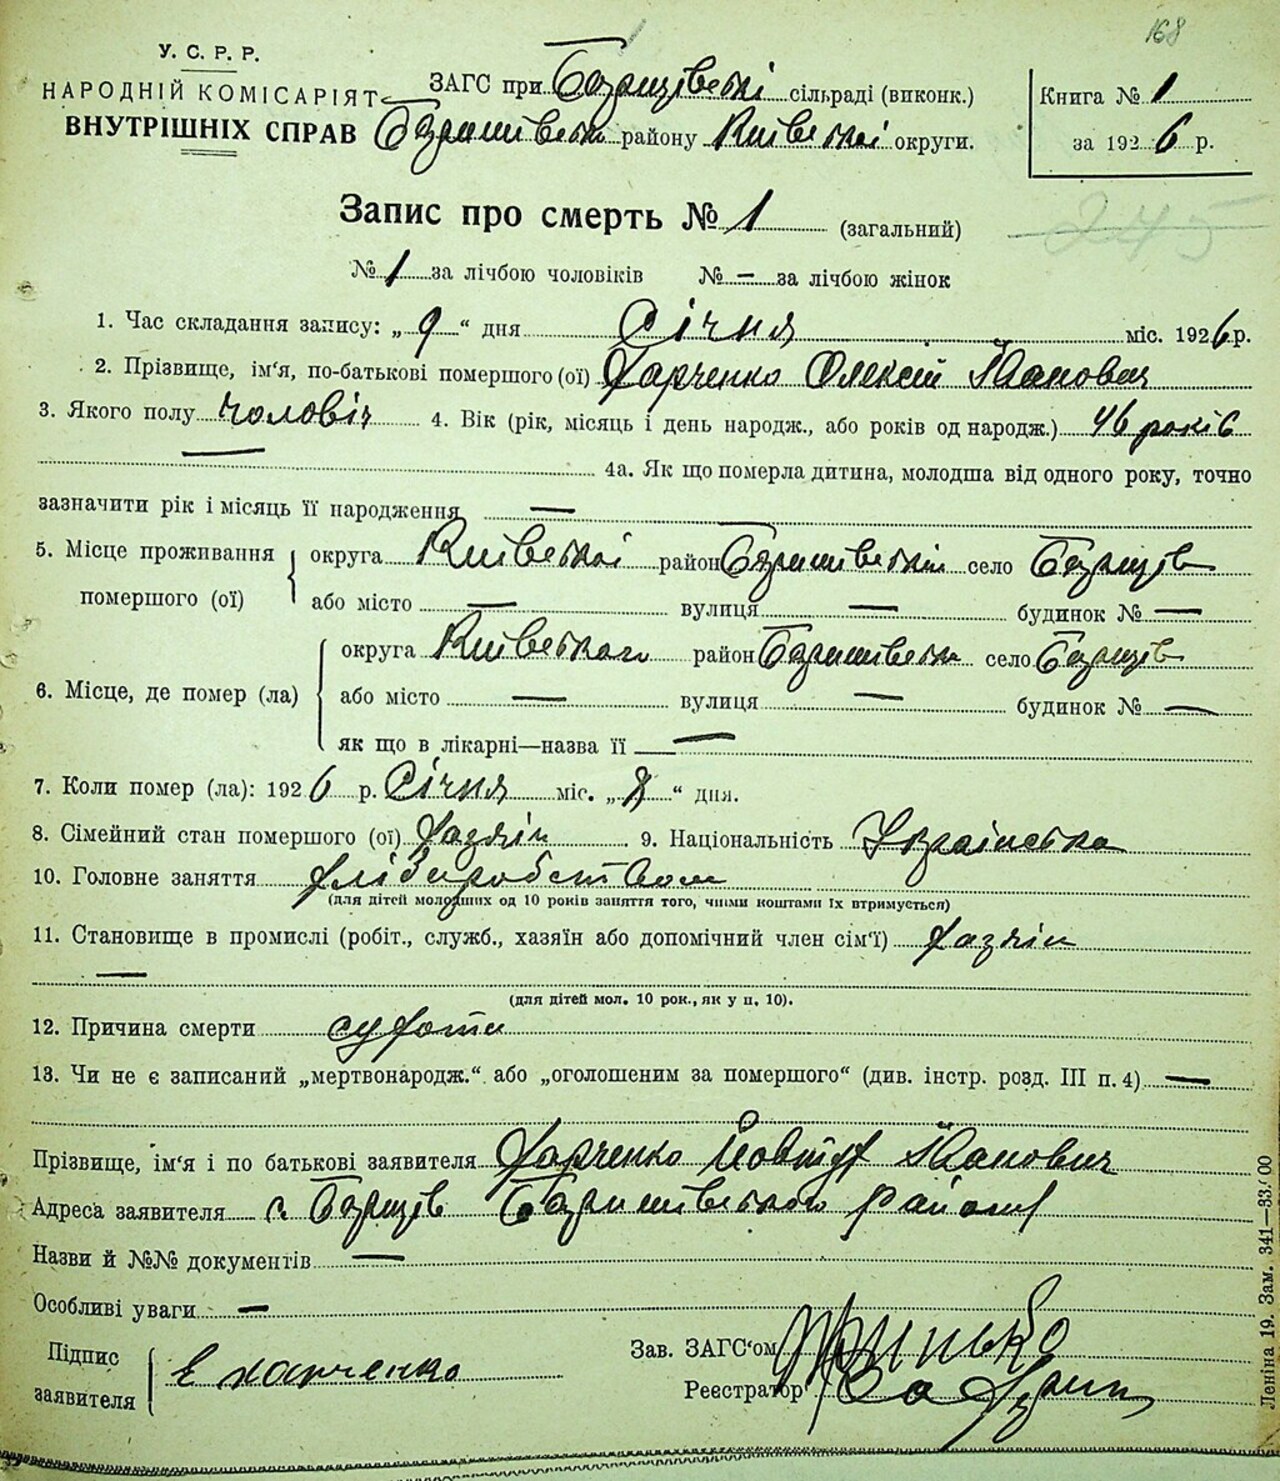 168
У. С. Р. Р.
НАРОДНІЙ КОМІСАРІЯТ
ВНУТРІШНІХ СПРАВ
ЗАГС при сільраді (виконк.)
району Київської округи.
Книга № 1
за 1926 р.
Запис про смерть № 1 (загальний)
245
№ 1 за лічбою чоловіків № — за лічбою жінок
1. Час складання запису: „ 9 “ дня Січня міс. 1926 р.
2. Прізвище, ім'я, по-батькові помершого (ої) Харченко Олексій Іванович
3. Якого полу чоловіч 4. Вік (рік, місяць і день народж., або років од народж.) 46 років
— 4а. Як що померла дитина, молодша від одного року, точно
зазначити рік і місяць її народження —
5. Місце проживання помершого (ої) округа Київської район село
або місто — вулиця — будинок № —
6. Місце, де помер (ла) округа район село
або місто — вулиця — будинок № —
як що в лікарні—назва її —
7. Коли помер (ла): 1926 р. Січня міс. „ 8 “ дня.
8. Сімейний стан помершого (ої) 9. Національність Українська
10. Головне заняття хліборобством
(для дітей молодших од 10 років заняття того, чиїми коштами їх втримується)
11. Становище в промислі (робіт., служб., хазяїн або допомічний член сім'ї) хазяїн
—
(для дітей мол. 10 рок., як у п. 10).
12. Причина смерти сухоти
13. Чи не є записаний „мертвонародж.“ або „оголошеним за помершого“ (див. інстр. розд. III п. 4) —
Прізвище, ім'я і по батькові заявителя Харченко Іванович
Адреса заявителя с. району
Назви й №№ документів —
Особливі уваги —
Підпис заявителя Є Харченко
Зав. ЗАГС'ом
Реєстратор
Леніна 19. Зам. 341—33.000